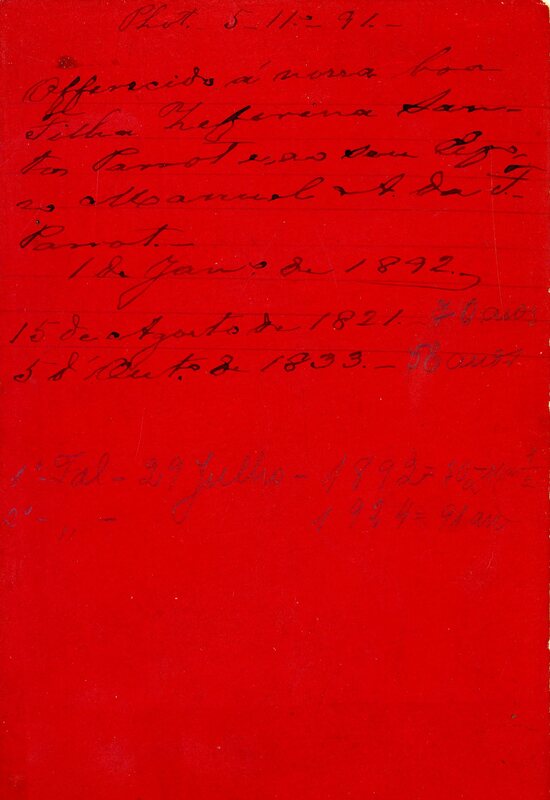 Phot. 5-11º-91.-
Offerecido á nossa boa
Filha Zefferina San-
tos Parrot e ao seu Espo-
zo Manuel A. da F.
Parrot.-
1 de Janrº de 1892.
15 de Agosto de 1821. 70 anos
5 d'Outº de 1833.- 58 anos
1º Fal - 29 Julho - 1892 =
2º - " - 1924 = 91 an